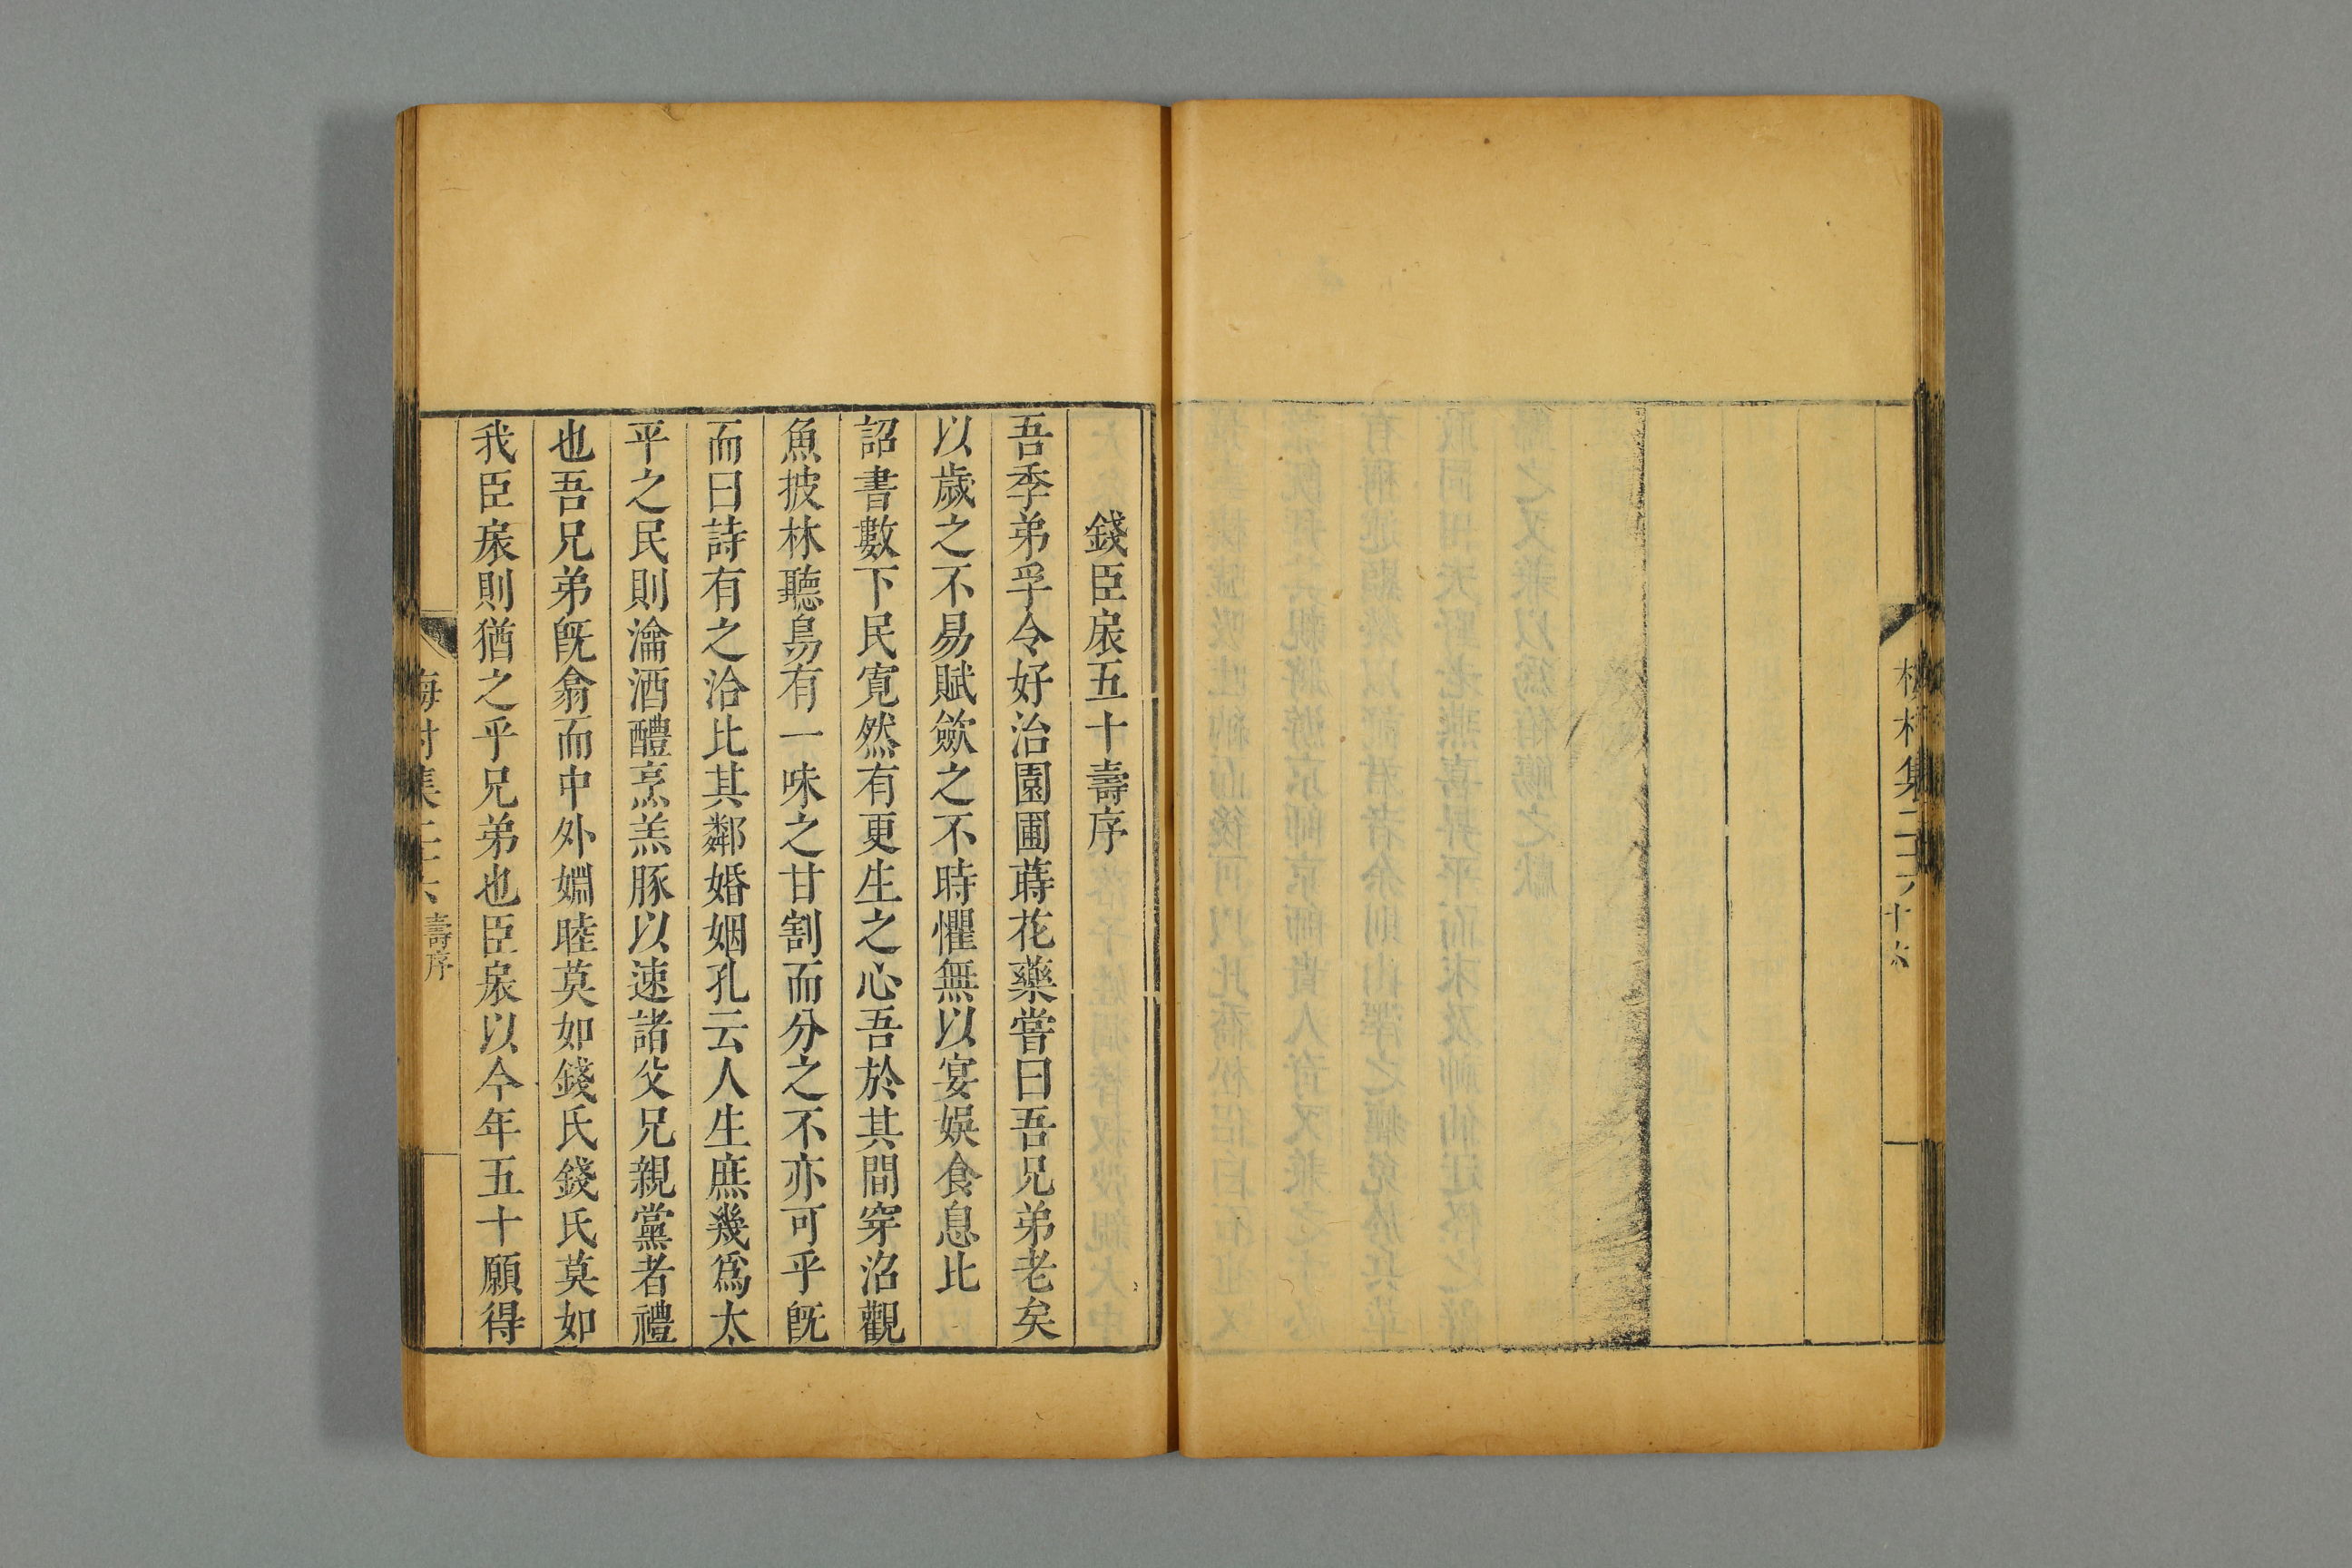 錢臣扆五十壽序
吾季弟孚令好治園圃蒔花藥嘗曰吾兄弟老矣
以歲之不易賦歛之不時懼無以宴娛食息比
詔書數下民寛然有更生之心吾於其間穿沼觀
魚披林聽鳥有一味之甘割而分之不亦可乎旣
而曰詩有之洽比其鄰婚姻孔云人生庶幾爲太
平之民則瀹酒醴烹羔豚以速諸父兄親黨者禮
也吾兄弟旣翕而中外婣睦莫如錢氏錢氏莫如
我臣扆則猶之乎兄弟也臣扆以今年五十願得
壽序